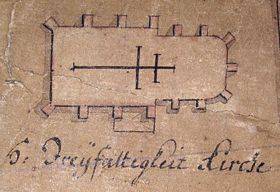 H. Dreÿfaltigkeit Kirche